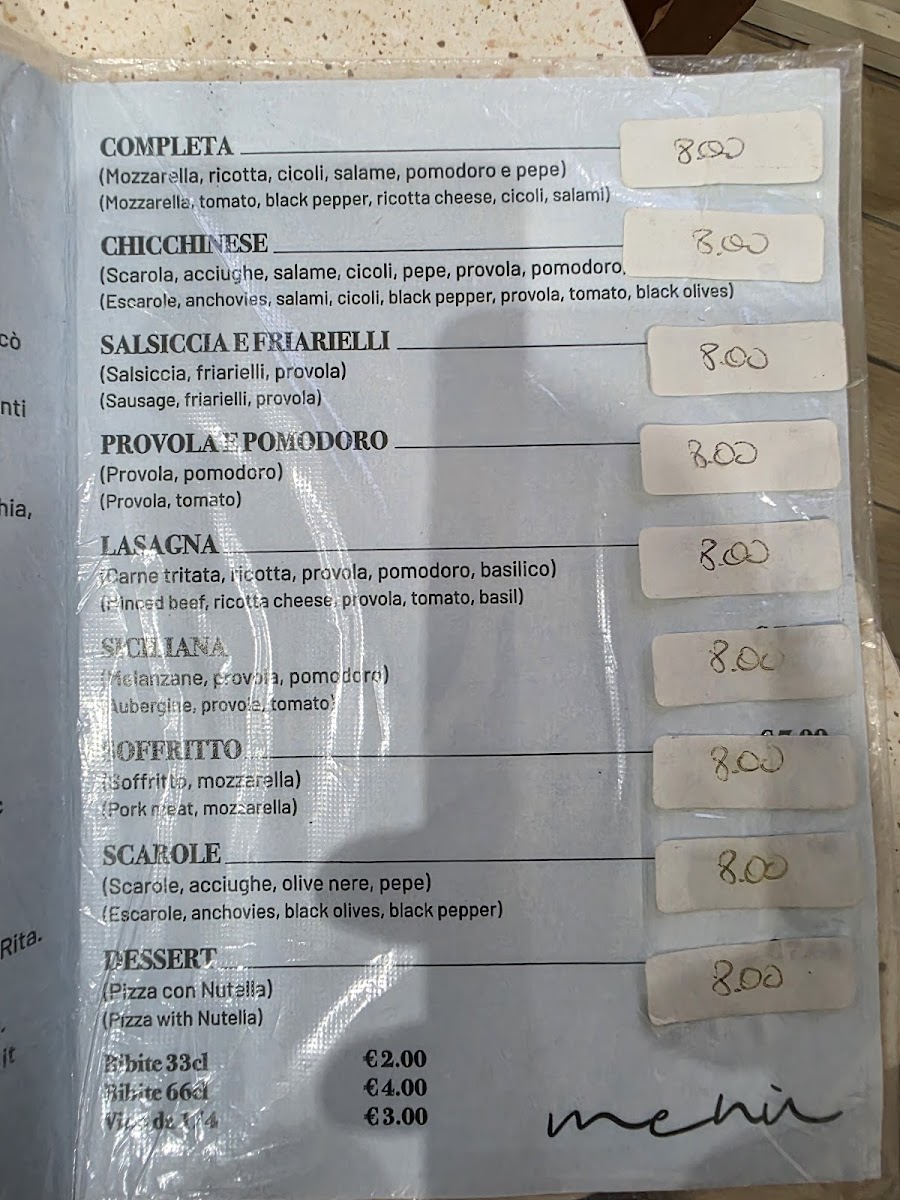 COMPLETA 8.00
(Mozzarella, ricotta, cicoli, salame, pomodoro e pepe)
(Mozzarella, tomato, black pepper, ricotta cheese, cicoli, salami)
CHICCHINESE 8.00
(Scarola, acciughe, salame, cicoli, pepe, provola, pomodoro,
(Escarole, anchovies, salami, cicoli, black pepper, provola, tomato, black olives)
SALSICCIA E FRIARIELLI 8.00
(Salsiccia, friarielli, provola)
(Sausage, friarielli, provola)
PROVOLA E POMODORO 8.00
(Provola, pomodoro)
(Provola, tomato)
LASAGNA 8.00
(Carne tritata, ricotta, provola, pomodoro, basilico)
(Minced beef, ricotta cheese, provola, tomato, basil)
SICILIANA 8.00
(Melanzane, provola, pomodoro)
(Aubergine, provola, tomato)
SOFFRITTO 8.00
(Soffritto, mozzarella)
(Pork meat, mozzarella)
SCAROLE 8.00
(Scarole, acciughe, olive nere, pepe)
(Escarole, anchovies, black olives, black pepper)
DESSERT 8.00
(Pizza con Nutella)
(Pizza with Nutella)
Bibite 33cl €2.00
Bibite 66cl €4.00
Vino da 1/4 €3.00
menù
cò
nti
hia,
Rita.
it